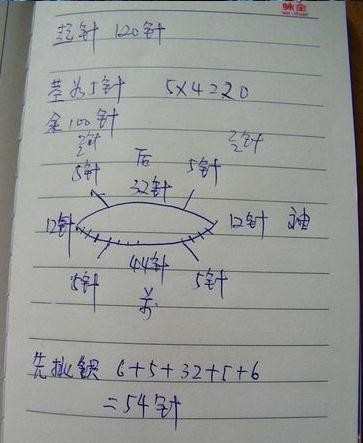 起针 120针
茎为5针 5×4=20
余100针
5针 后 5针
32针
12针 12针 袖
44针
5针 5针
前
先挑织 6+5+32+5+6
=54针